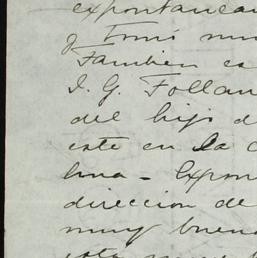 expontanea
y tomó mu
Tambien es
I. G. Follan
del hijo d
este en la c
lina - Expon
direccion de
muy buena